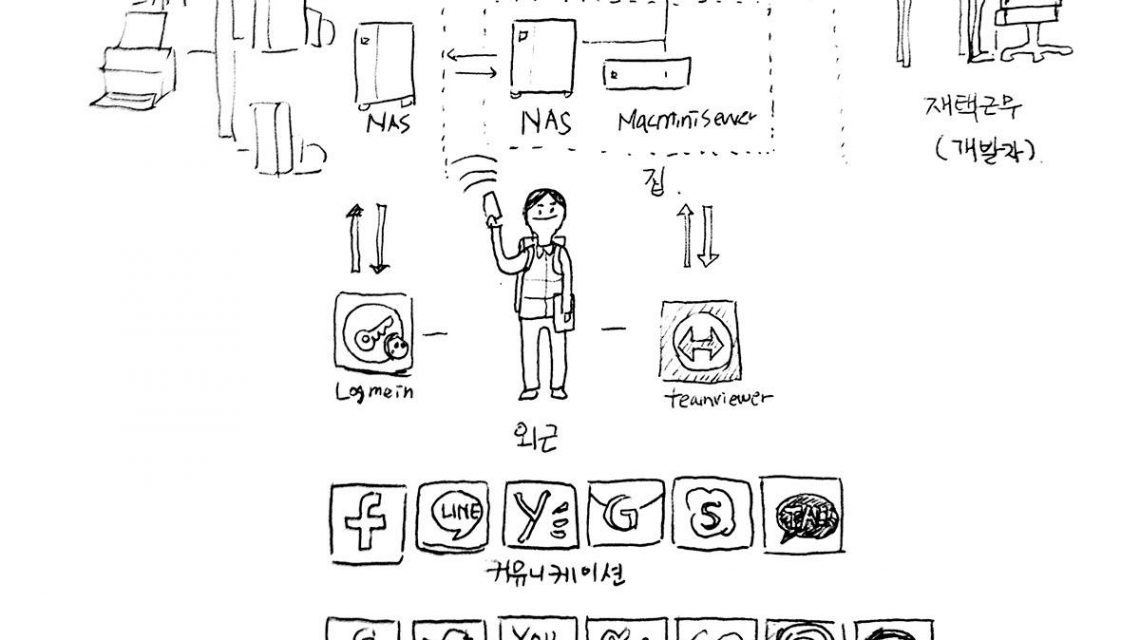 NAS
NAS
Macminiserver
재택근무
(개발자).
집.
Logmein
teamviewer
외근
f
LINE
Y
G
S
TALK
커뮤니케이션
YOU